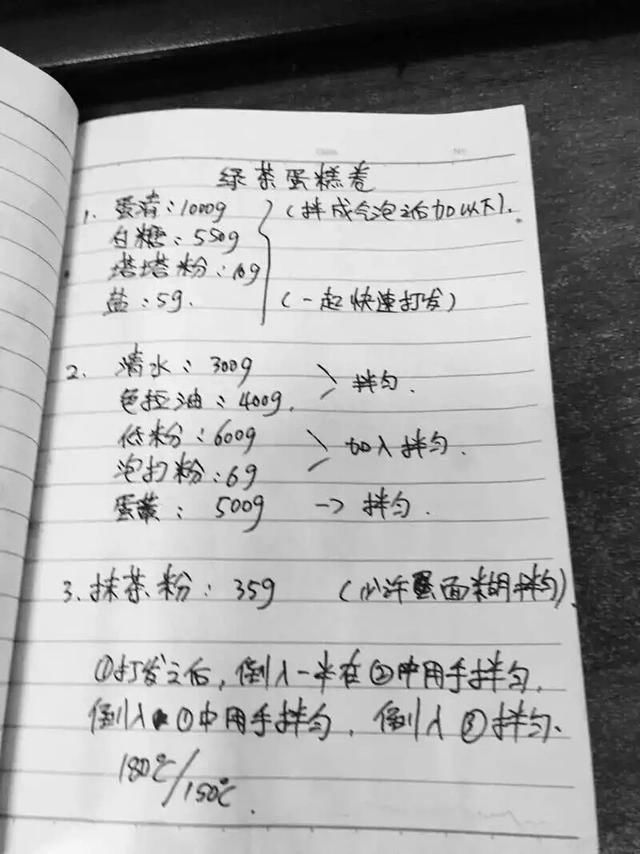 绿茶蛋糕卷
1. 蛋清：1000g （拌成气泡之后加以下）.
白糖：550g
塔塔粉：10g
盐：5g. （一起快速打发）
2. 清水：300g
拌匀.
色拉油：400g.
低粉：600g
加入拌匀.
泡打粉：6g
蛋黄：500g → 拌匀.
3. 抹茶粉：35g （少许蛋面糊拌匀）
①打发之后，倒入一半在②中用手拌匀.
倒入①中用手拌匀，倒入③拌匀.
180℃/150℃.